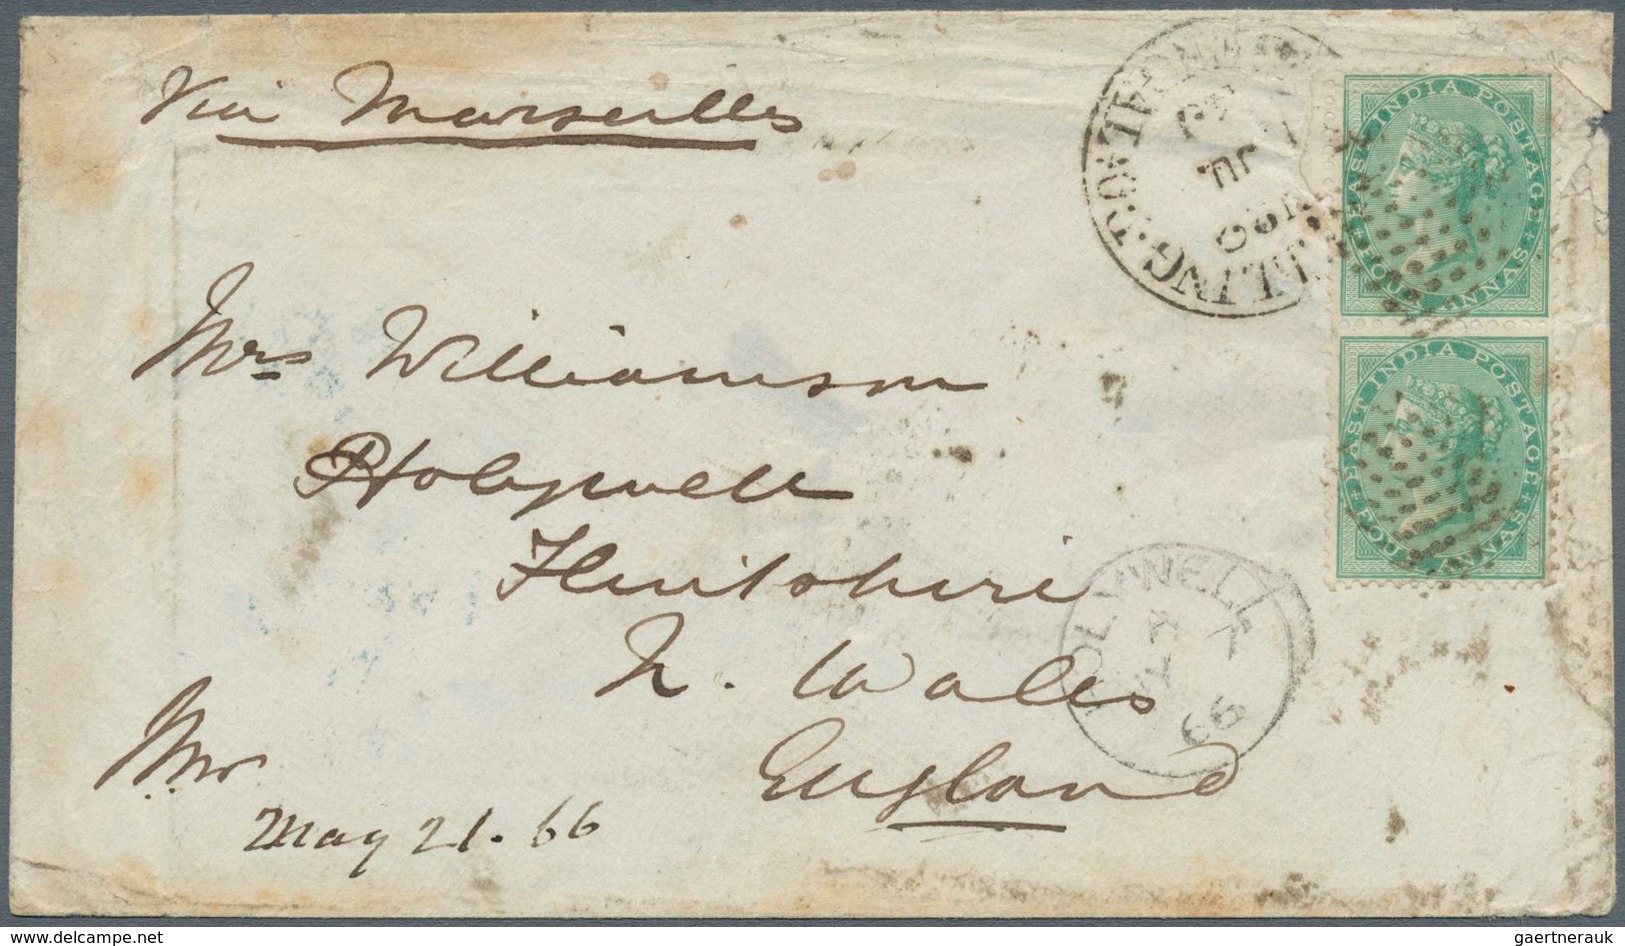 Via Marseilles
Mrs Williamson
Holywell
Flintshire
N. Wales
England
May 21. 66
EAST INDIA POSTAGE
FOUR ANNAS
EAST INDIA POSTAGE
FOUR ANNAS
JU
HOLYWELL
JY 7
66
www.delcampe.net
gaertnerauk